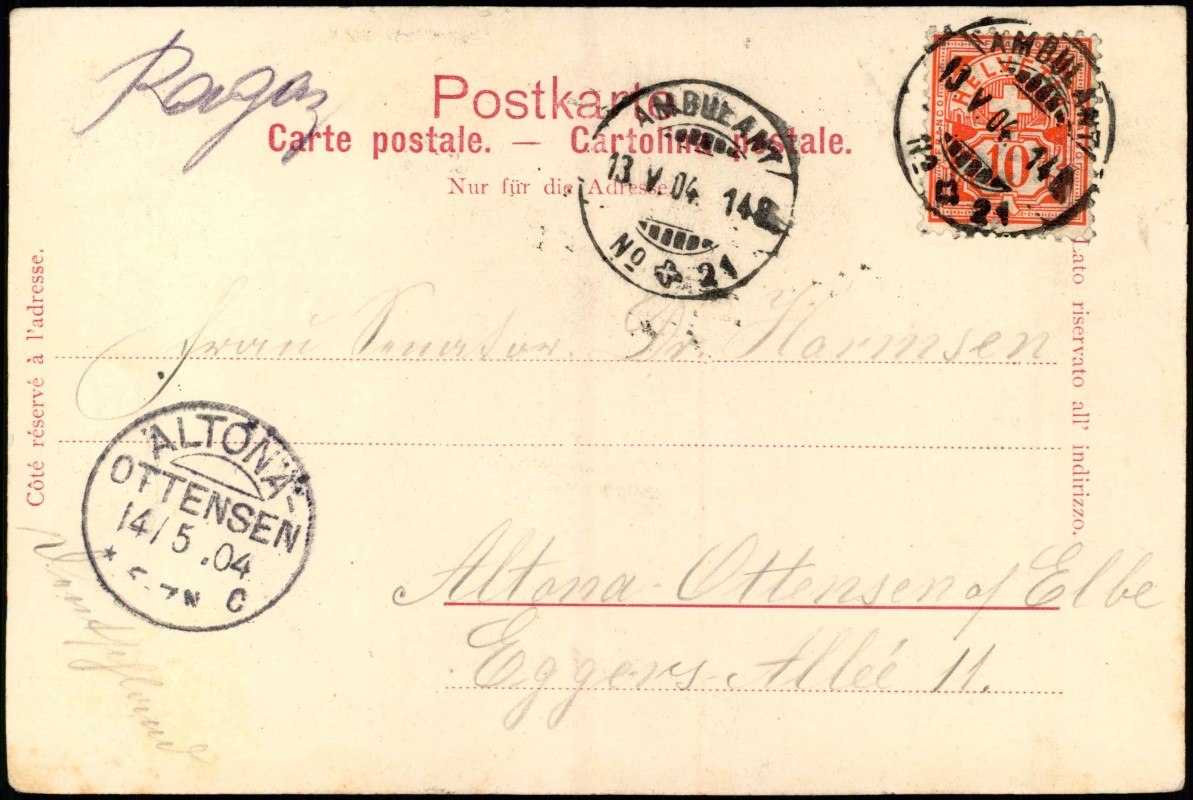 Ragaz
Postkarte
Carte postale. — Cartolina postale.
Nur für die Adresse.
AMBULANT
13 V 04 14
No 21
HELVETIA
FRANCO
10
AMBULANT
13. V. 04. 148
No 21
Côté réservé à l'adresse.
Lato riservato all' indirizzo.
Frau Senator. Dr. Harmsen
ALTONA-
OTTENSEN
14/5.04
* 5-7N C
Altona-Ottensen a/ Elbe
Eggers-Allée 11.